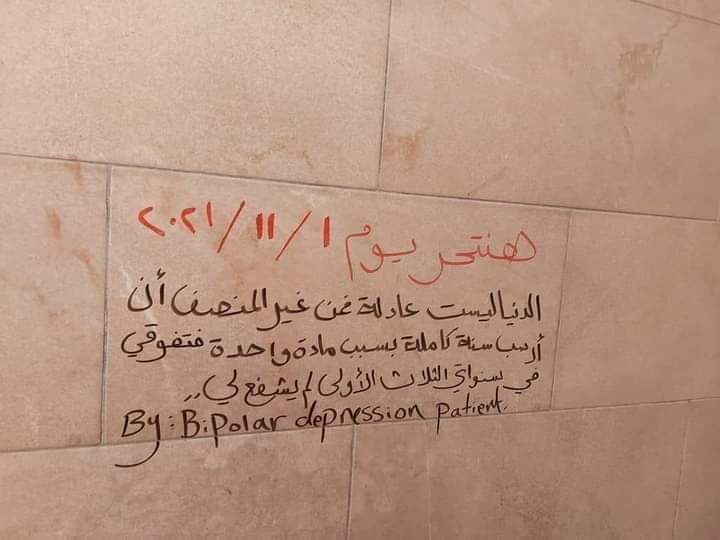 هنتحر يوم ١/١١/٢٠٢١
الدنيا ليست عادلة فمن غير المنصف أن
أرسب سنة كاملة بسبب مادة واحدة فتفوقي
في سنواتي الثلاث الأولى لم يشفع لي..
By: Bipolar depression patient.